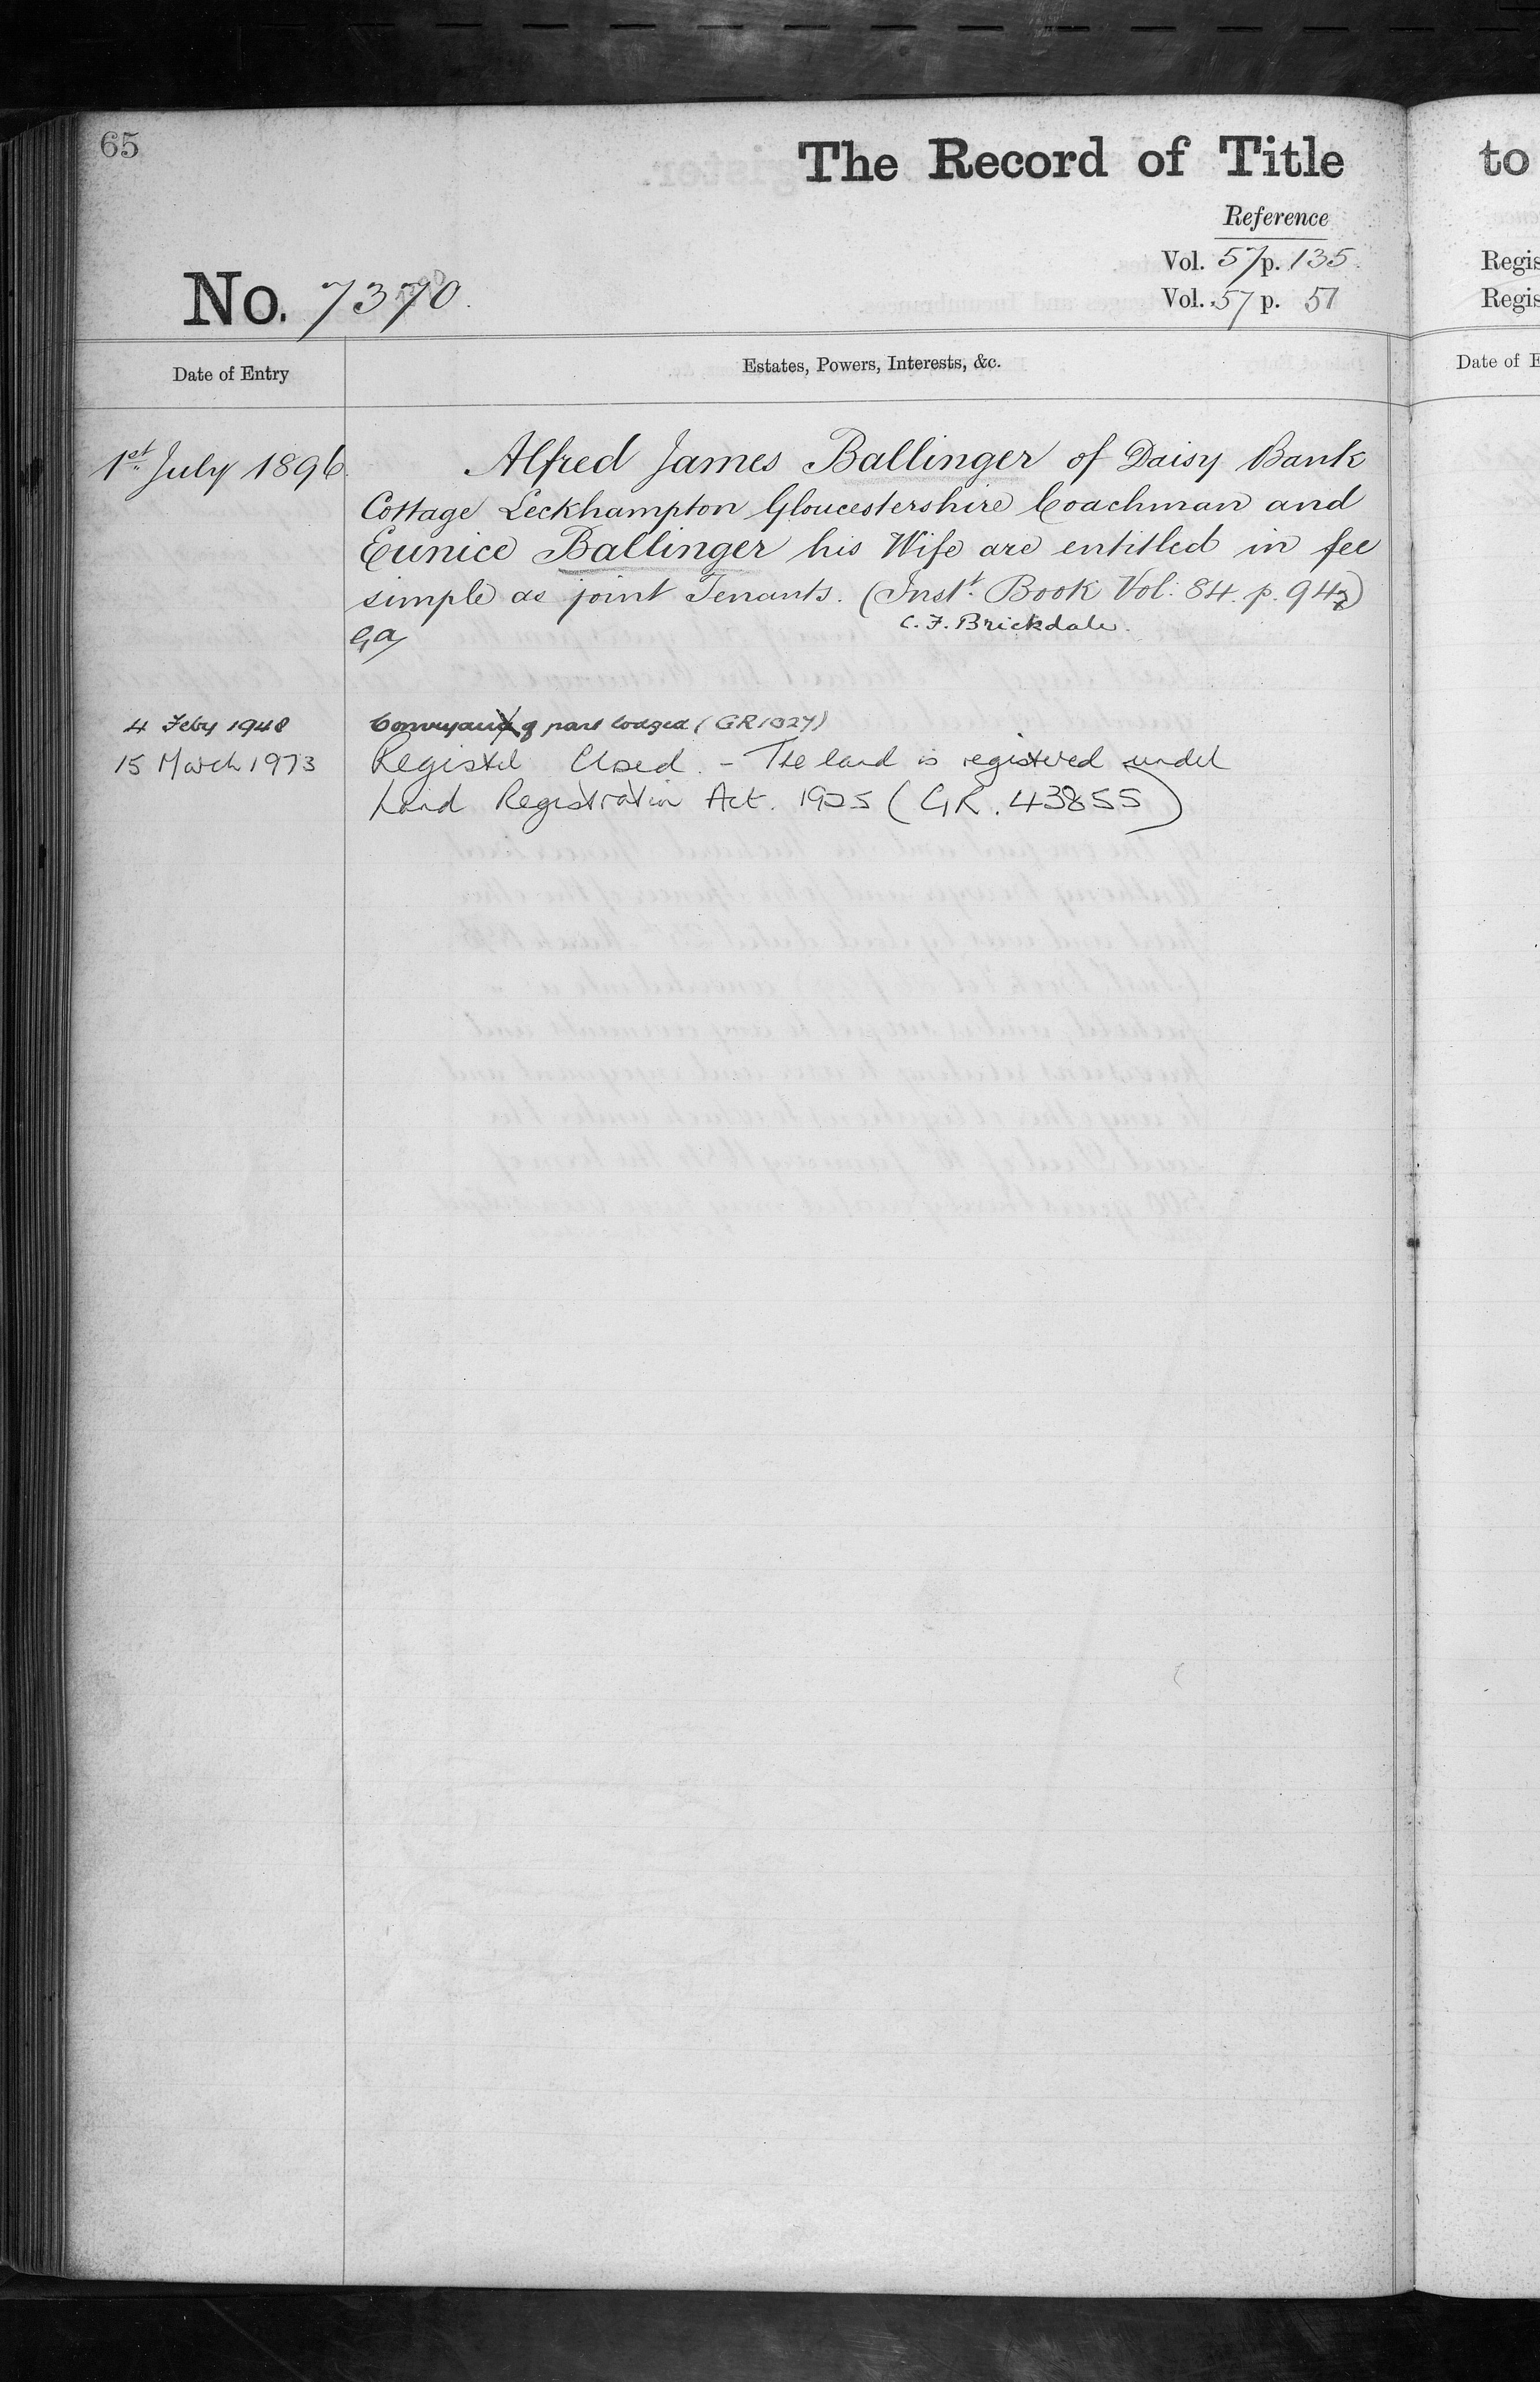 65
The Record of Title
to
Reference
Vol. 57 p. 135.
Regis
No. 7370.
Vol. 57 p. 51
Regis
Date of Entry
Estates, Powers, Interests, &c.
Date of E
1st July 1896.
Alfred James Ballinger of Daisy Bank
Cottage Leckhampton Gloucestershire Coachman and
Eunice Ballinger his Wife are entitled in fee
simple as joint Tenants. (Inst. Book Vol: 84. p. 947)
C. F. Brickdale.
4 Feby 1948
Conveyance of part lodged (GR1027)
15 March 1973
Register Closed. - The land is registered under
Land Registration Act. 1925 (GR. 43855)